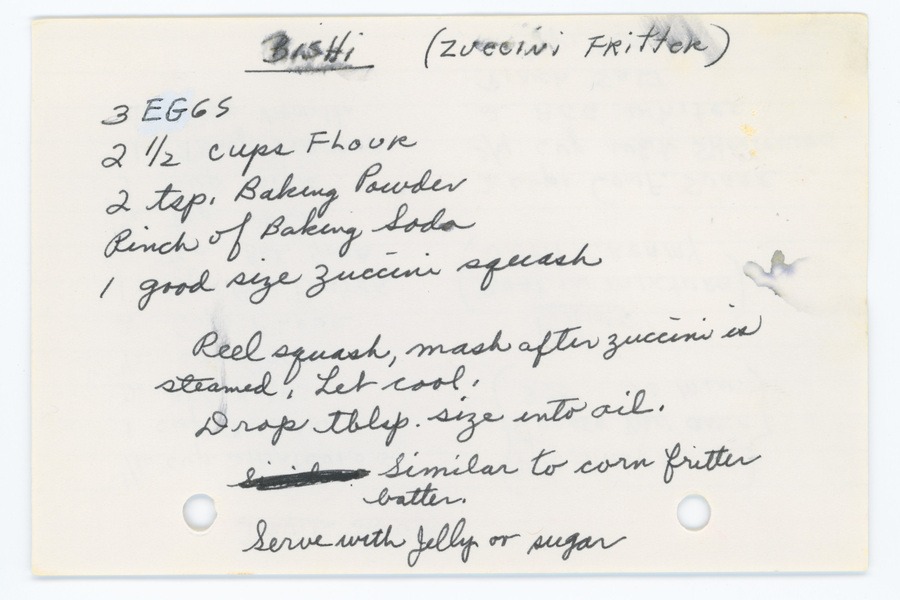 BISHI (ZUCCINI FRITTER)
3 EGGS
2 1/2 cups FLOUR
2 tsp. Baking Powder
Pinch of Baking Soda
1 good size zuccini squash
Peel squash, mash after zuccini is
steamed. Let cool.
Drop tblsp. size into oil.
Similar to corn fritter
batter.
Serve with Jelly or sugar